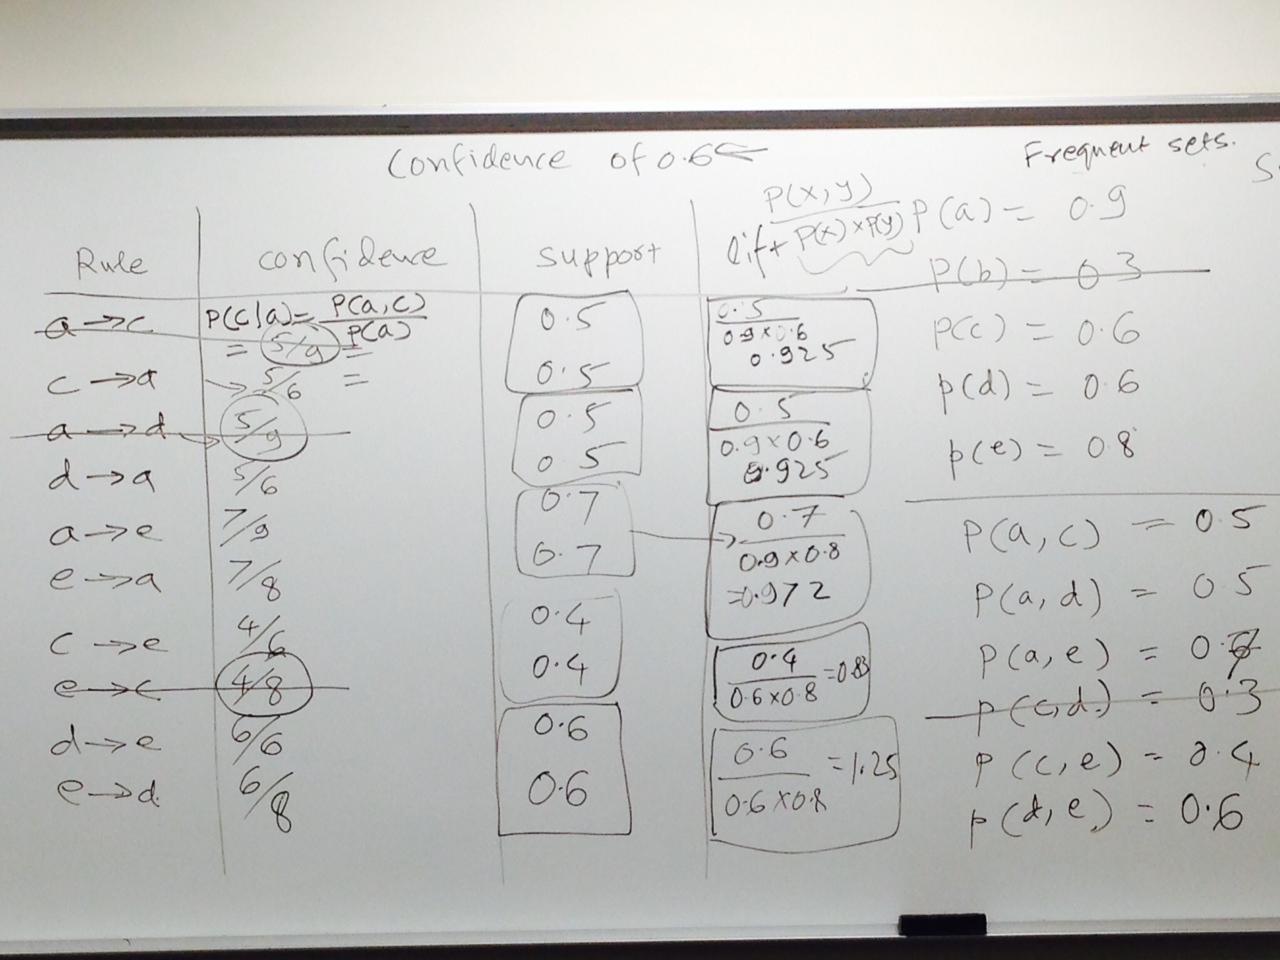 Confidence of 0.6 ←
Frequent sets.
S
Rule
confidence
support
lift P(x,y) / P(x)×P(y)
a → c
P(c|a) = P(a,c) / P(a)
= 5/9 =
0.5
0.5 / 0.9×0.6
0.925
c → a
→ 5/6 =
0.5
a → d
5/9
0.5
0.5 / 0.9×0.6
0.925
d → a
5/6
0.5
a → e
7/9
0.7
0.7 / 0.9×0.8
=0.972
e → a
7/8
0.7
c → e
4/6
0.4
0.4 / 0.6×0.8 =0.83
e → c
4/8
0.4
d → e
6/6
0.6
0.6 / 0.6×0.8 =1.25
e → d
6/8
0.6
P(a) = 0.9
P(b) = 0.3
P(c) = 0.6
p(d) = 0.6
p(e) = 0.8
P(a,c) = 0.5
P(a,d) = 0.5
P(a,e) = 0.7
p(c,d) = 0.3
P(c,e) = 0.4
p(d,e) = 0.6